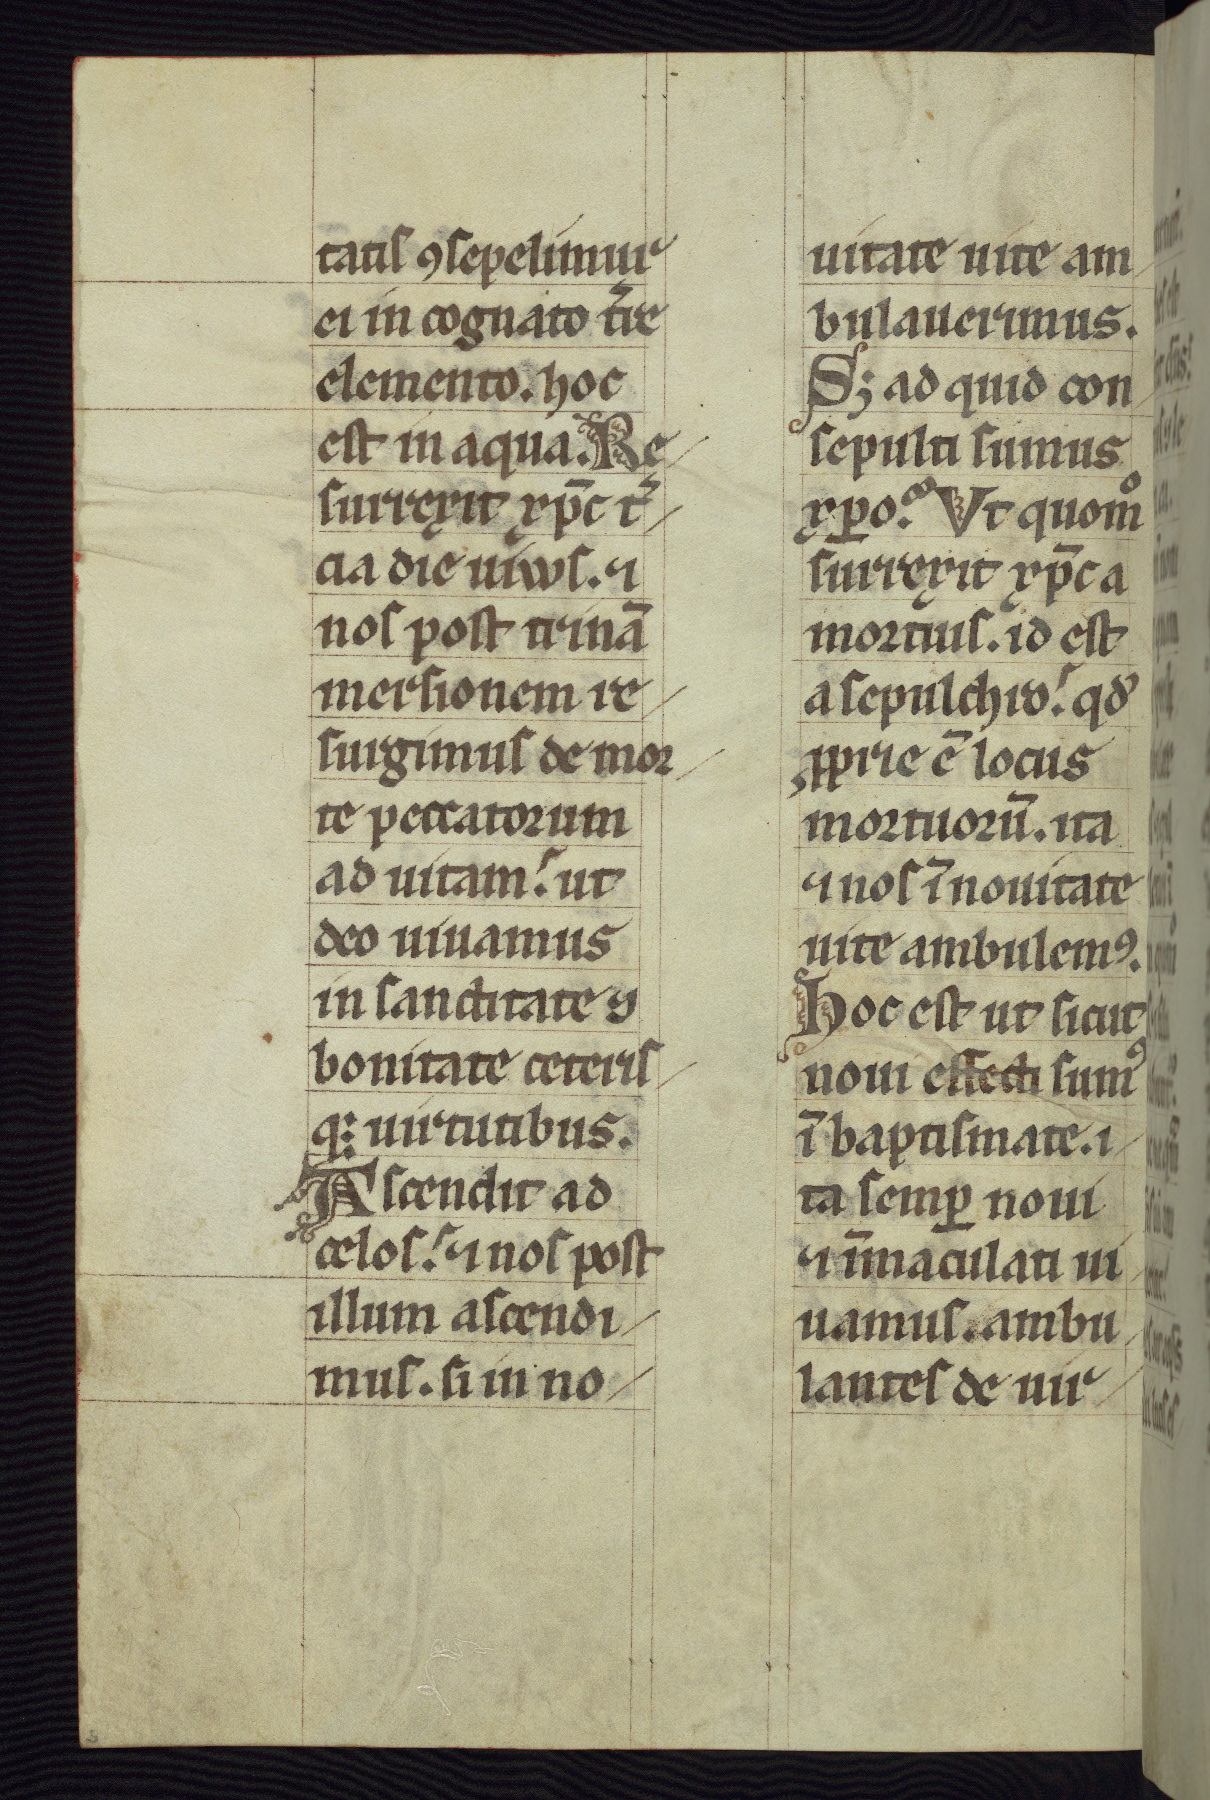 tatis ꝯsepelimur
ei in cognato t̃re
elemento. hoc
est in aqua. Re
surrexit xp̄c t̃
cia die uiuus. ⁊
nos post trinā
mersionem re
surgimus de mor
te peccatorum
ad uitam: ut
deo uiuamus
in sanctitate ⁊
bonitate ceteris
q; uirtutibus.
Ascendit ad
celos: ⁊ nos post
illum ascendi
mus. si in no
uitate uite am
bulauerimus.
Sꝫ ad quid con
sepulti sumus
xp̄o? Vt quomͦ
surrexit xp̄c a
mortuis. id est
a sepulchro: qđ
ꝓprie ē locus
mortuorū. ita
⁊ nos ī nouitate
uite ambulemꝰ.
Hoc est ut sicut
noui effecti sumꝰ
ī baptismate. i
ta semꝑ noui
⁊ īmaculati ui
uamus. ambu
lantes de uir